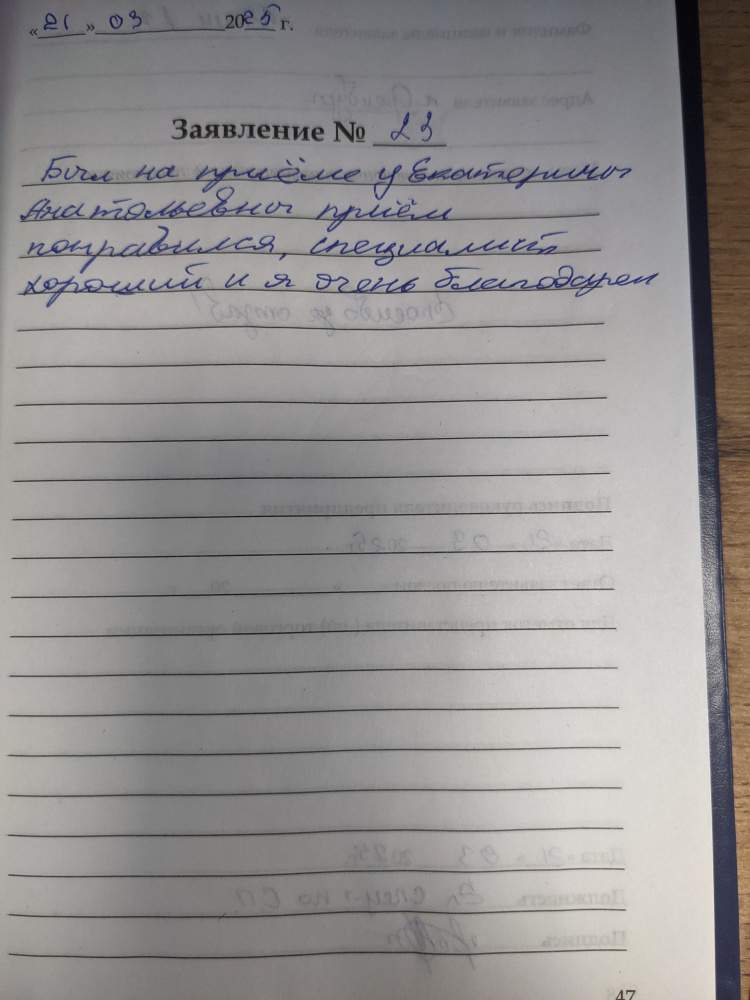 «21» 03 2025 г.
Заявление № 23
Был на приёме у Екатерины
Анатольевны приём
понравился, специалист
хороший и я очень благодарен
47